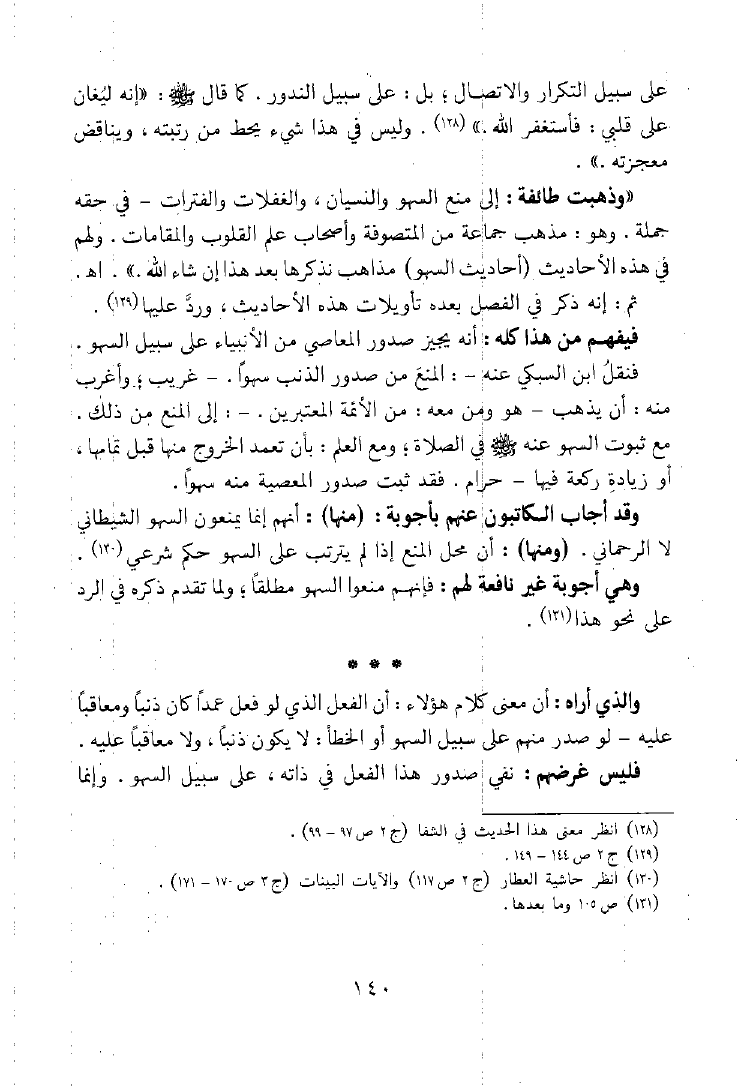 على سبيل التكرار والاتصال ؛ بل : على سبيل الندور . كما قال ﷺ : «إنه ليُغان
على قلبي : فأستغفر الله .» (١٢٨) . وليس في هذا شيء يحط من رتبته ، ويناقض
معجزته .» .
«وذهبت طائفة : إلى منع السهو والنسيان ، والغفلات والفترات – في حقه
جملة . وهو : مذهب جماعة من المتصوفة وأصحاب علم القلوب والمقامات . ولهم
في هذه الأحاديث (أحاديث السهو) مذاهب نذكرها بعد هذا إن شاء الله .» . اهـ .
ثم : إنه ذكر في الفصل بعده تأويلات هذه الأحاديث ، وردَّ عليها (١٢٩) .
فيفهم من هذا كله : أنه يجيز صدور المعاصي من الأنبياء على سبيل السهو .
فنقلُ ابن السبكي عنه – : المنعَ من صدور الذنب سهواً . – غريب ؛ وأغرب
منه : أن يذهب – هو ومن معه : من الأئمة المعتبرين . – : إلى المنع من ذلك .
مع ثبوت السهو عنه ﷺ في الصلاة ؛ ومع العلم : بأن تعمد الخروج منها قبل تمامها ،
أو زيادةِ ركعة فيها – حرام . فقد ثبت صدور المعصية منه سهواً .
وقد أجاب الكاتبون عنهم بأجوبة : (منها) : أنهم إنما يمنعون السهو الشيطاني
لا الرحماني . (ومنها) : أن محل المنع إذا لم يترتب على السهو حكم شرعي (١٣٠) .
وهي أجوبة غير نافعة لهم : فإنهم منعوا السهو مطلقاً ؛ ولما تقدم ذكره في الرد
على نحو هذا (١٣١) .
* * *
والذي أراه : أن معنى كلام هؤلاء : أن الفعل الذي لو فعل عمداً كان ذنباً ومعاقباً
عليه – لو صدر منهم على سبيل السهو أو الخطأ : لا يكون ذنباً ، ولا معاقباً عليه .
فليس غرضهم : نفي صدور هذا الفعل في ذاته ، على سبيل السهو . وإنما
(١٢٨) انظر معنى هذا الحديث في الشفا (ج ٢ ص ٩٧ – ٩٩) .
(١٢٩) ج ٢ ص ١٤٤ – ١٤٩ .
(١٣٠) انظر حاشية العطار (ج ٢ ص ١١٧) والآيات البينات (ج ٣ ص ١٧٠ – ١٧١) .
(١٣١) ص ١٠٥ وما بعدها .
١٤٠